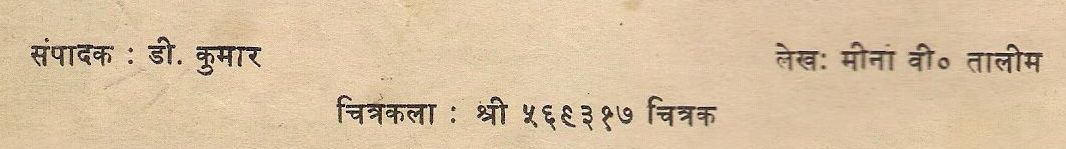 संपादक : डी. कुमार
लेख: मीनां वी० तालीम
चित्रकला : श्री ५६९३१७ चित्रक